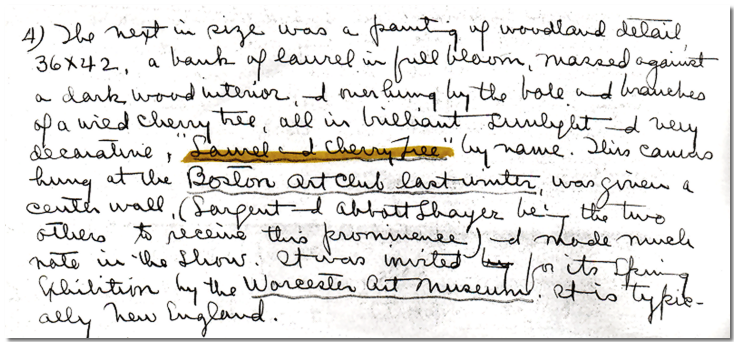 4) The next in size was a painting of woodland detail,
36x42, a bank of laurel in full bloom, massed against
a dark wood interior, & overhung by the bole and branches
of a wild cherry tree, all in brilliant sunlight & very
decorative, "Laurel and Cherry Tree" by name. This canvas
hung at the Boston Art Club last winter, was given a
center wall, (Sargent & Abbott Thayer being the two
others to receive this prominence) & made much
note in the show. It was invited by for its Spring
Exhibition by the Worcester Art Museum. It is typic-
ally New England.